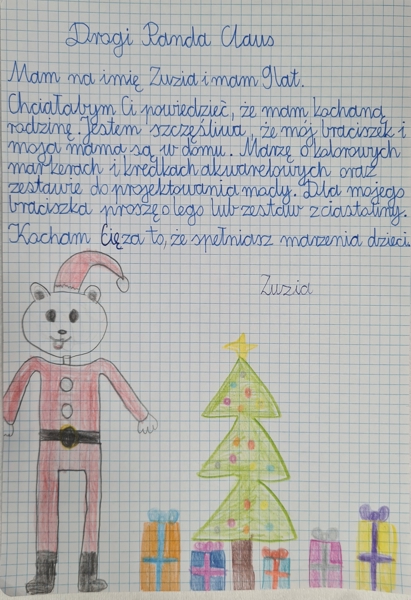 Drogi Panda Claus
Mam na imię Zuzia i mam 9 lat.
Chciałabym Ci powiedzieć, że mam kochaną
rodzinę. Jestem szczęśliwa, że mój braciszek i
moja mama są w domu. Marzę o kolorowych
markerach i kredkach akwarelowych oraz
zestawie do projektowania mody. Dla mojego
braciszka proszę o lego lub zestaw z ciastoliny.
Kocham Cię za to, że spełniasz marzenia dzieci.
Zuzia